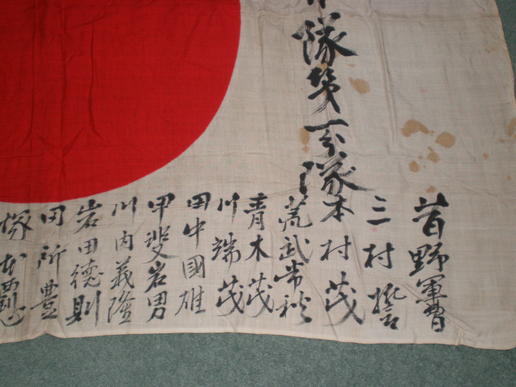 隊第一分隊
菅野軍曹
三村誓
本村茂
荒武常秋
青木茂
川端茂
田中國雄
甲斐岩男
川内義隆
岩田德則
田所豊
塚本